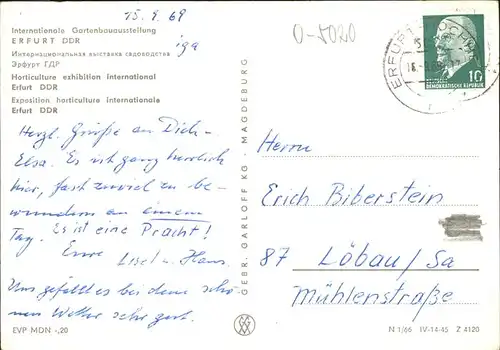 15.9.69
0-5020
Internationale Gartenbauausstellung
ERFURT DDR
iga
Интернациональная выставка садоводства
Эрфурт ГДР
Horticulture exhibition international
Erfurt DDR
Exposition horticulture internationale
Erfurt DDR
Herzl. Grüße an Dich –
Elsa. Es ist ganz herrlich
hier, fast zuviel zu be-
wundern an einem
Tag. Es ist eine Pracht!
Eure
Lisel – Hans.
Uns gefällt es bei dem schö-
nen Wetter sehr gut.
EVP MDN -,20
GEBR. GARLOFF KG · MAGDEBURG
ERFURT
10
DEUTSCHE
DEMOKRATISCHE REPUBLIK
Herrn
Erich Biberstein
87 Löbau/Sa
Mühlenstraße
N 1/66 IV-14-45 Z 4120